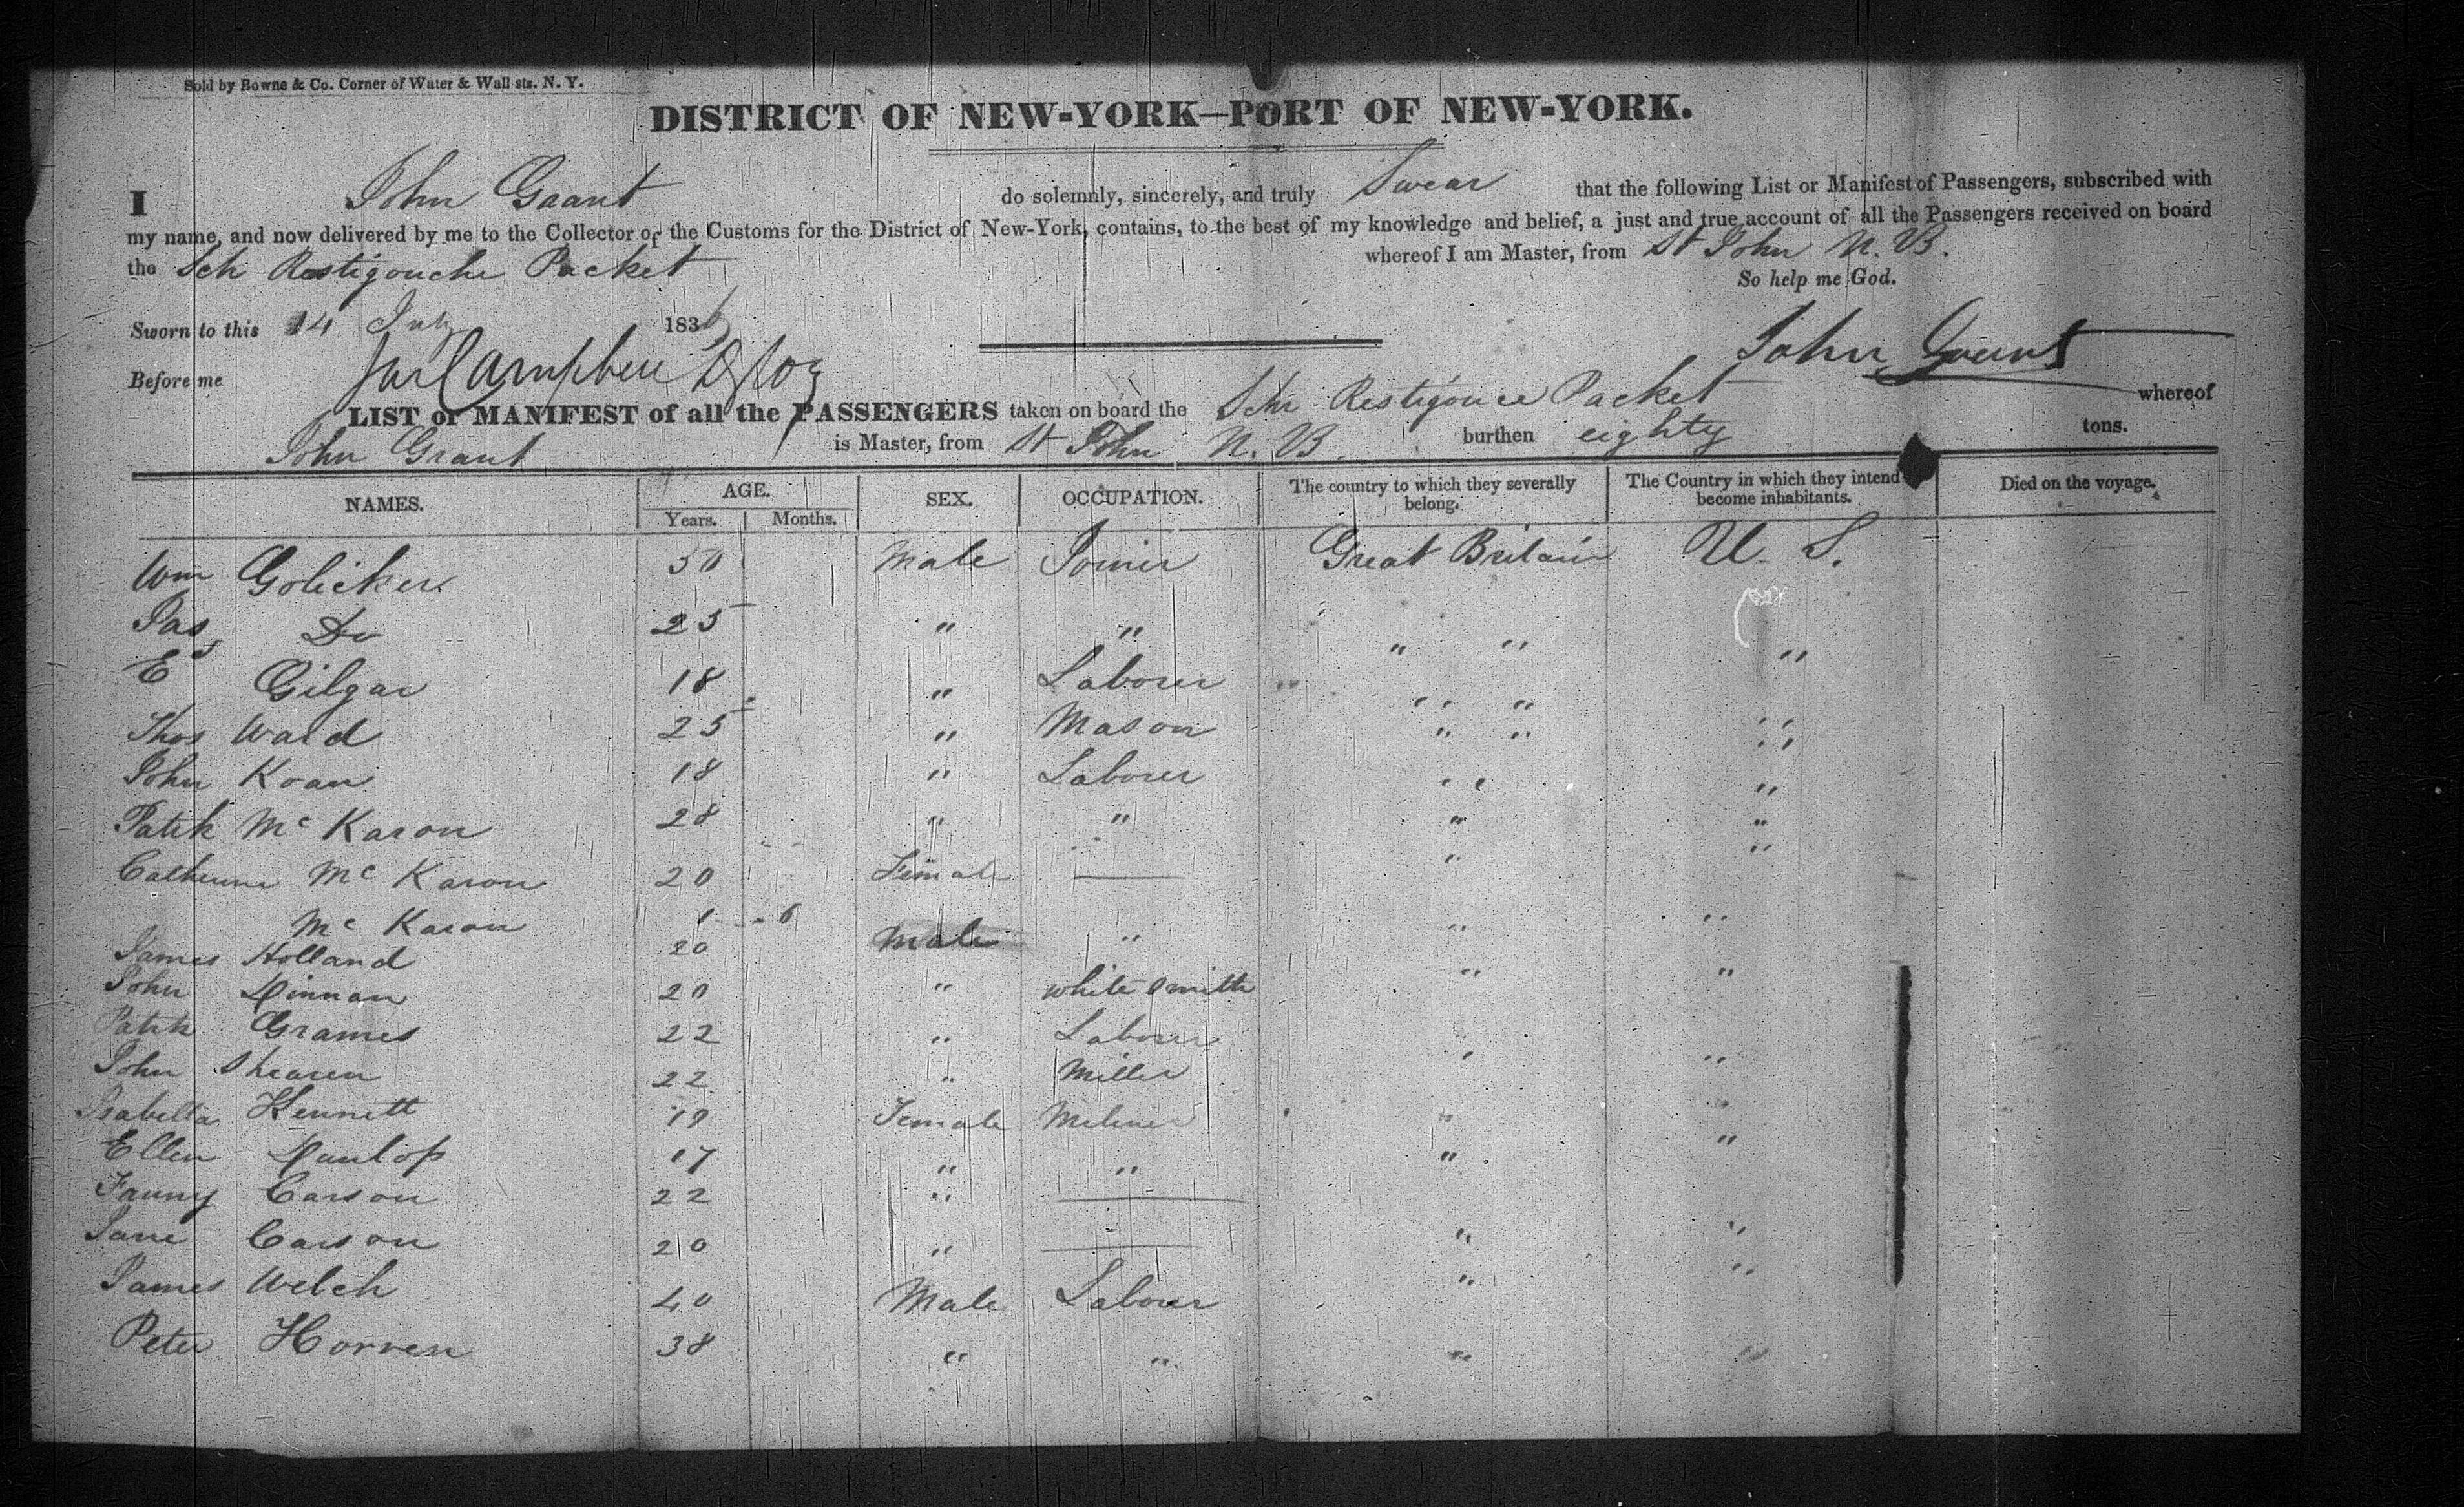 Sold by Bowne & Co. Corner of Water & Wall sts. N. Y.
DISTRICT OF NEW-YORK—PORT OF NEW-YORK.
I John Grant do solemnly, sincerely, and truly Swear that the following List or Manifest of Passengers, subscribed with
my name, and now delivered by me to the Collector of the Customs for the District of New-York, contains, to the best of my knowledge and belief, a just and true account of all the Passengers received on board
the Sch Restigouche Packet whereof I am Master, from St John N. B.
So help me God.
Sworn to this 14 July 1836
John Grant
Before me Campbell
LIST or MANIFEST of all the PASSENGERS taken on board the Schr Restigouce Packet whereof
John Grant is Master, from St John N. B. burthen eighty tons.
NAMES. AGE. SEX. OCCUPATION. The country to which they severally belong. The Country in which they intend become inhabitants. Died on the voyage.
Years. Months.
Wm Golicker 50 Male Joiner Great Britain U. S.
Jas Do 25 " " " " "
E Gilgar 18 " Laborer " " "
Thos Ward 25 " Mason " " "
John Koan 18 " Laborer " " "
Patk Mc Karon 28 " " " "
Catherine Mc Karon 20 Female — " "
Mc Karon 1 6
James Holland 20 Male " " "
John Dinnan 20 " white smith " "
Patk Grames 22 " Laborer "
John Shearen 22 " Miller " "
Isabella Kennett 19 Female Milener " "
Ellen Dunlop 17 " " " "
Fanny Carson 22 " —
Jane Carson 20 " — " "
James Welch 40 Male Laborer " "
Peter Horren 38 " " " "